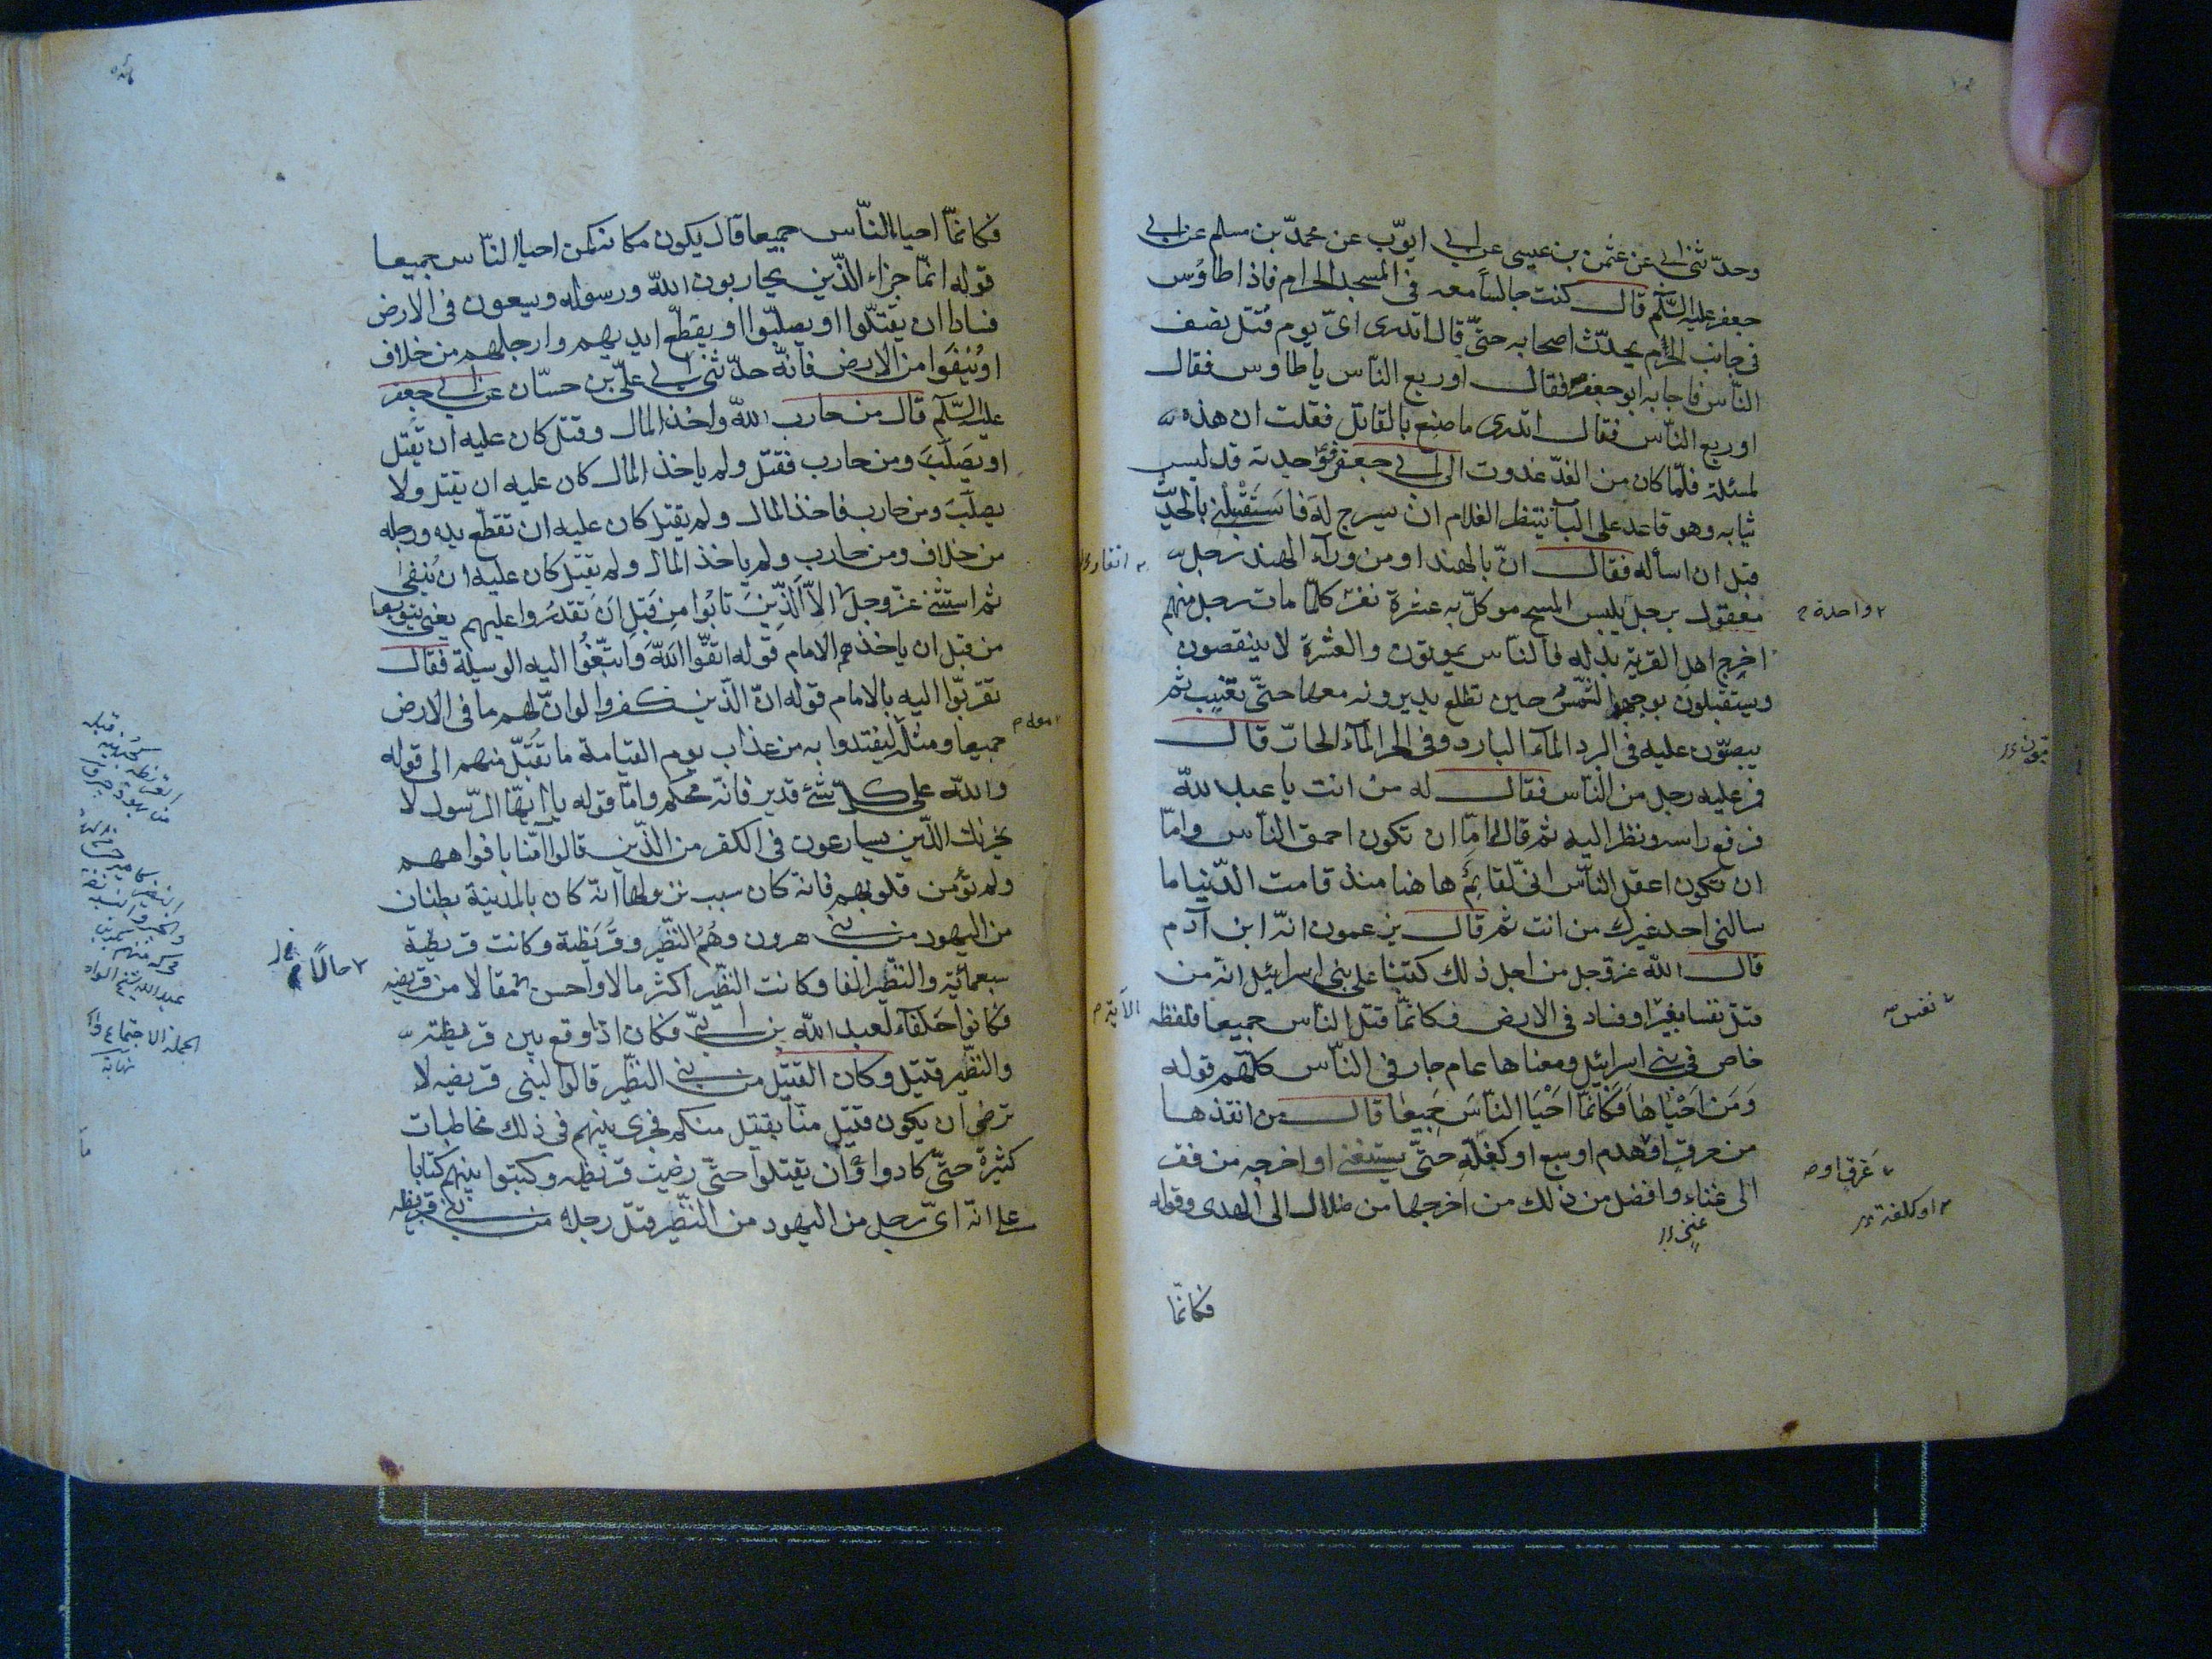 وحدّثنى ابى عن عثمن بن عيسى عن ابى ايوّب عن محمدّ بن مسلم عن ابى
جعفر عليه السّلم قال كنت جالساً معه فى المسجد الحرام فاذا طاوُس
فى جانب الحرم يحدّث اصحابه حتىّ قال اتدرى اىّ يوم قُتل نصف
النّاس فاجابه ابو جعفر فقال او ربع النّاس يا طاوس فقال
او ربع النّاس فقال اتدرى ما صنع بالقاتل فقلت ان هذه
لمسئلة فلّما كان من الغدّ غدوت الى ابى جعفر فوٌاجدته قد لبس
ثيابه وهو قاعد على الباب ينتظر الغلام ان يسرج له فاستقبلنى بالحديث
قبل ان اسأله فقال انّ بالهند او من ورآء الهند رجل
معقول برجل يلبس المسح موكلّ به عشرة نفر كلمّا مات رجل منهم
اخرج اهل القرية بدله فالناس يموتون والعشرة لا ينقصون
ويستقبلون بوجهه الشّمس حين تطلع يديرونه معها حتىّ تغيب ثم
يصبّون عليه فى البرد المآء البارد وفى الحر المآء الحارّ قال
فر عليه رجل من النّاس فقال له من انت يا عبد الله
فرفع راسه ونظر اليه ثم قال له امّا ان تكون احمق النّاس وامّا
ان تكون اعقل النّاس انى لقائم ها هنا منذ قامت الدّنيا ما
سالنى احد غيرك من انت ثم قال يزعمون انّه ابن آدم
قال الله عزّوجل من اجل ذلك كتبنا على بنى اسرائيل انّه من
قتل نفسا بغير او فساد فى الارض فكانمّا قتل النّاس جميعا فلفظه
خاص فى بنى اسرائيل ومعناها عام جار فى النّاس كلّهم قوله
وَمَن اَحْيٰاهٰا فَكَانّمٰا اَحْيَا النّاسَ جَميعا قال من انقذها
من حرق او هدم او سبع او كفله حتىّ يستغنى او اخرجه من فقر
الى غناء وافضل من ذلك من اخرجها من ضلال الى الهدى وقوله
فكانمّا
واحدة
نفس
غرق او
او كلفة
غنى
فكانمّا احيا النّاس جميعا قال يكون مكانه كمن احيا النّاس جميعا
قوله انمّا جزاء الذّين يحاربون الله ورسوله ويسعون فى الارض
فسادا ان يقتّلوا او يصلبّوا او يقطّع ايديهم وارجلهم من خلاف
او يُنفَوا من الارض فانّه حدّثنى ابى علىّ بن حسّان عن ابى جعفر
عليه السّلم قال من حارب الله واخذ المال وقتل كان عليه ان يُقتل
او يصَلّبَ ومن حارب فقتل ولم ياخذ المال كان عليه ان يقتل ولا
يصلّبَ ومن حارب فاخذ المال ولم يقتل كان عليه ان تقطّع يده ورجله
من خلاف ومن حارب ولم ياخذ المال ولم يقتل كان عليه ان يُنفىٰ
ثم استثنى عزّوجلّ الاّ الَّذينَ تابُوا مِن قَبلِ اَن تَقدِرُوا عليهم يعنى يتوبوا
من قبل ان ياخذهم الامام قوله اتقّوا اللهَ وَابتَغُوا اليه الوسيلة فقال
تقربّوا اليه بالامام قوله انّ الّذين كفروا لو انّ لهم ما فى الارض
جميعا ومثله ليفتدوا به من عذاب يوم القيامة ما تقُبّل منهم الى قوله
والله على كلّ شئ قدير فانّه محكم وامّا قوله يا ايهّا الرّسول لا
يحزنك الذّين يسارعون فى الكفر من الذّين قالوا امّنا بافواههم
ولم تؤمن قلوبهم فانّه كان سبب نزولها انّه كان بالمدينة بطنان
من اليهود من بنى هرون وهُم النظّير وقُريَظة وكانت قريظة
سبعمائية والنظّير الفا وكانت النظّير اكثر مالا واحسن مقالا من قريضه
فكانوا حلفآء لعبد الله بن ابىّ فكان اذا وقع بين قريظة
والنظّير قتيل وكان القتيل من بنى النظّير قالوا لبنى قريضه لا
ترضى ان يكون قتيل منّا بقتيل منكم فجرى بينهم فى ذلك مخاطبات
كثيرة حتىّ كادوا ان يقتلوا حتىّ رضيت قريظه وكتبوا بينهم كتابا
على انّه اىّ رجل من اليهود من النظّير قتل رجلا من بنى قريظه
حالاً